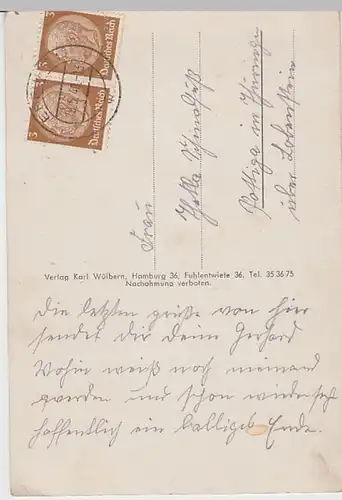 3 Deutsches Reich 3
3 Deutsches Reich 3
Frau
Hella
Pottiga in Thüringen
über Lobenstein
Verlag Karl Wölbern, Hamburg 36, Fuhlentwiete 36, Tel. 35 36 75
Nachahmung verboten.
Die letzten grüße von hier
sendet dir dein Gerhard
Wohin weiß noch niemand
und schon
hoffentlich ein baldiges Ende.